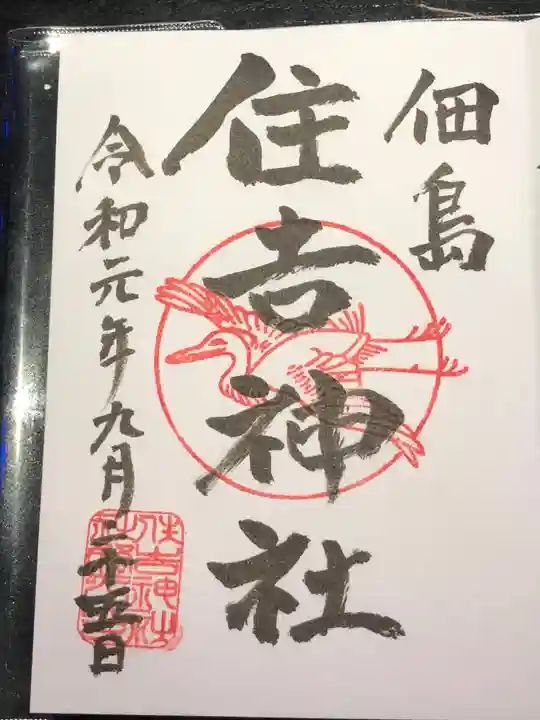 佃島
住吉神社
令和元年九月二十五日